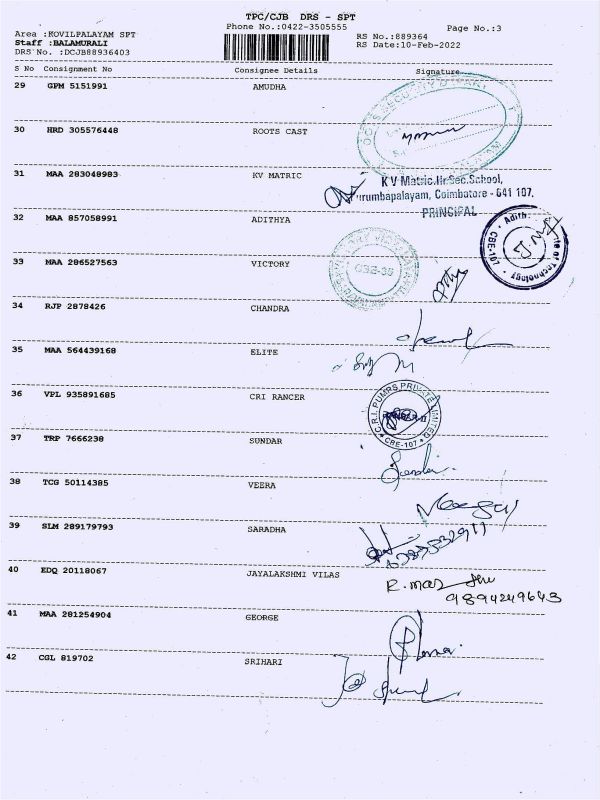 TPC/CJB DRS - SPT
Phone No.:0422-3505555
Page No.:3
Area :KOVILPALAYAM SPT
RS No.:889364
Staff :BALAMURALI
RS Date:10-Feb-2022
DRS No. :DCJB88936403
S No Consignment No Consignee Details Signature
29 GPM 5151991 AMUDHA
30 HRD 305576448 ROOTS CAST
31 MAA 283048983 KV MATRIC
K V Matric.Hr.Sec.School,
urumbapalayam, Coimbatore - 641 107.
PRINCIPAL
32 MAA 857058991 ADITHYA
Adith
te of Technology
CBE-107
33 MAA 286527563 VICTORY
CBE-35
34 RJP 2878426 CHANDRA
35 MAA 564439168 ELITE
36 VPL 935891685 CRI RANCER
C.R.I. PUMPS PRIVATE LIMITED
CBE-107
37 TRP 7666238 SUNDAR
38 TCG 50114385 VEERA
39 SLM 289179793 SARADHA
40 EDQ 20118067 JAYALAKSHMI VILAS
9894249643
41 MAA 281254904 GEORGE
42 CGL 819702 SRIHARI